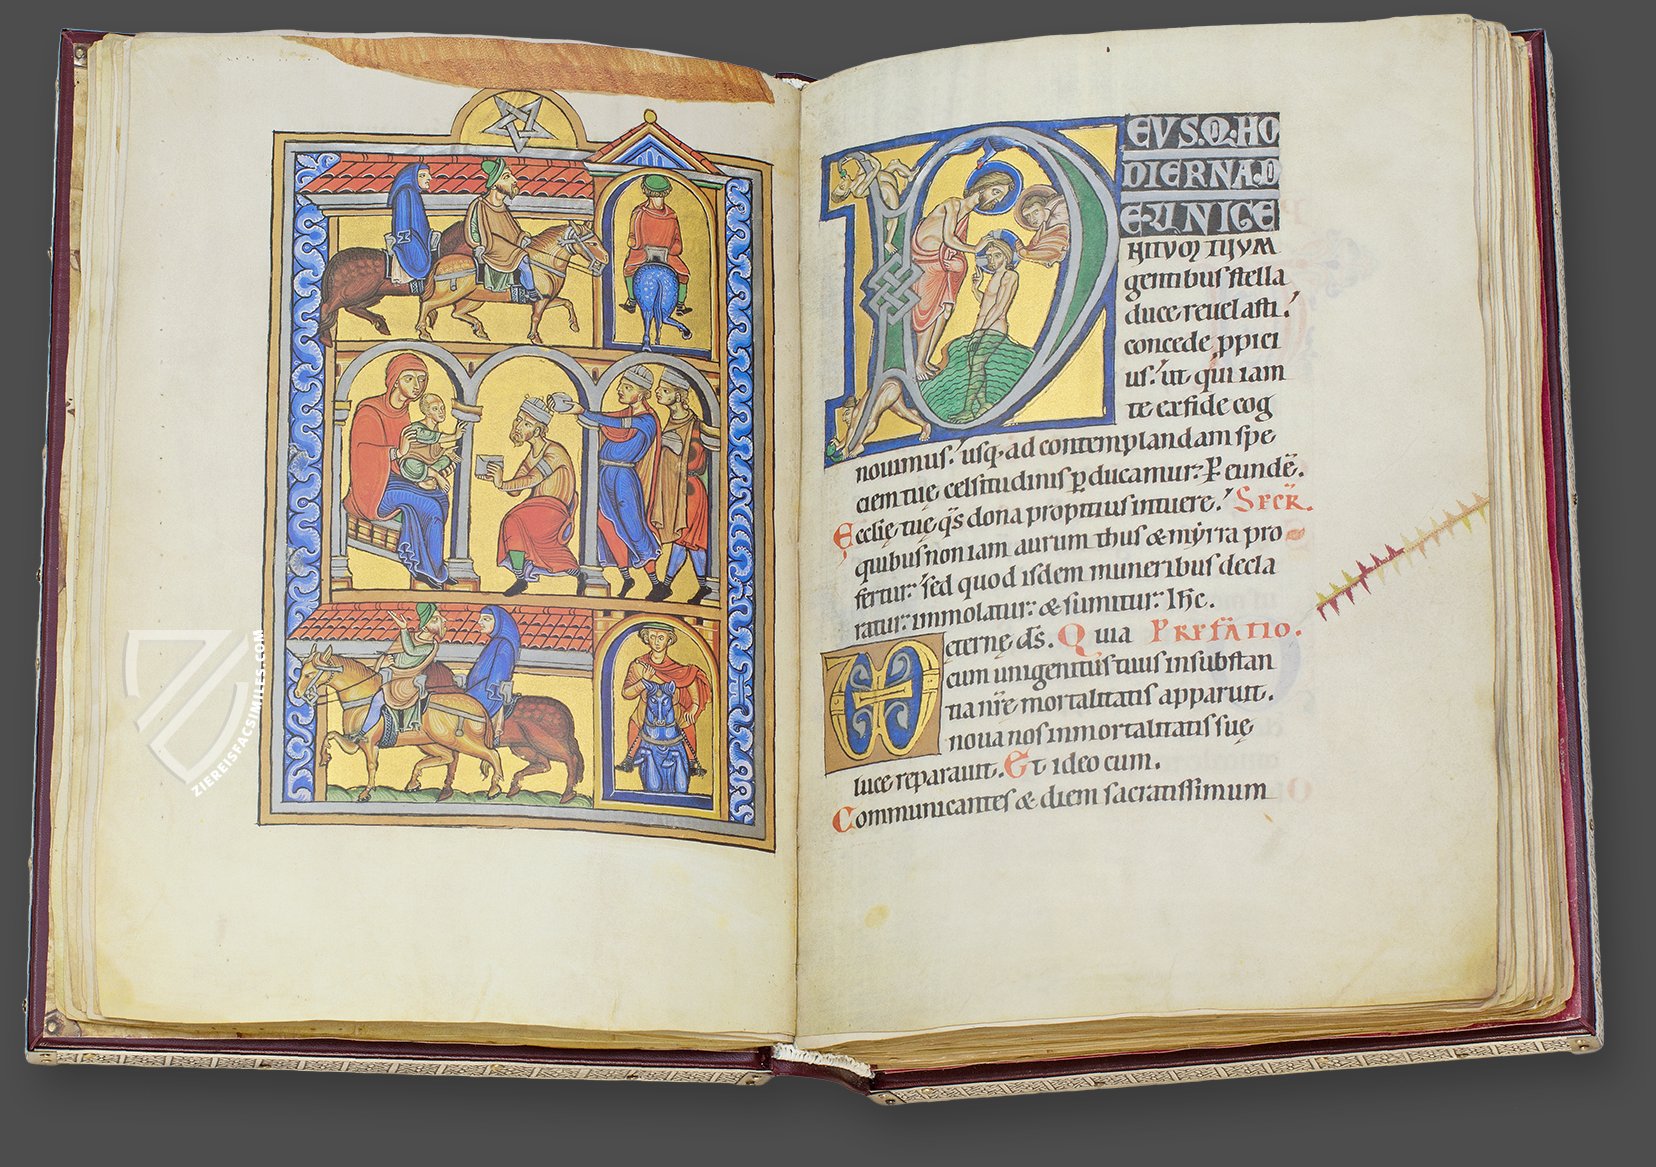 EUS.Q.HO
DIERNA.D
E.UNIGE
NITUM TUUM
gentibus stella
duce revelasti.
concede ppici
us. ut qui iam
te ex fide cog
novimus. usq. ad contemplandam spe
ciem tuę celsitudinis pducamur. P eundē.
Ecclię tuę qs dona propitius intuere. SECR.
quibus non iam aurum thus & myrra pro
fertur. sed quod isdem muneribus decla
ratur. immolatur. & sumitur. Ihc.
eternę ds. Quia PREFATIO.
cum unigenitus tuus in substan
tia nrē mortalitatis apparuit.
nova nos immortalitatis suę
luce reparavit. Et ideo cum.
Communicantes & diem sacratissimum
ZIEREISFACSIMILES.COM